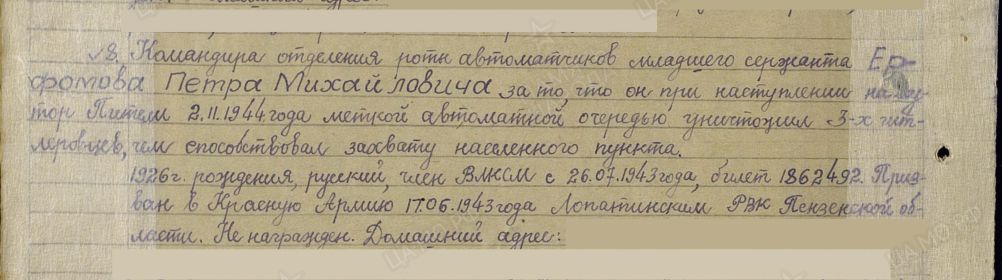 8. Командира отделения роты автоматчиков младшего сержанта Ер-
фомова Петра Михайловича за то, что он при наступлении на ху-
тор Пители 2.11.1944 года меткой автоматной очередью уничтожил 3-х гит-
леровцев, чем способствовал захвату населенного пункта.
1926 г. рождения, русский, член ВЛКСМ с 26.07.1943 года, билет 1862492. Приз-
ван в Красную Армию 17.06.1943 года Лопатинским РВК Пензенской об-
ласти. Не награжден. Домашний адрес: